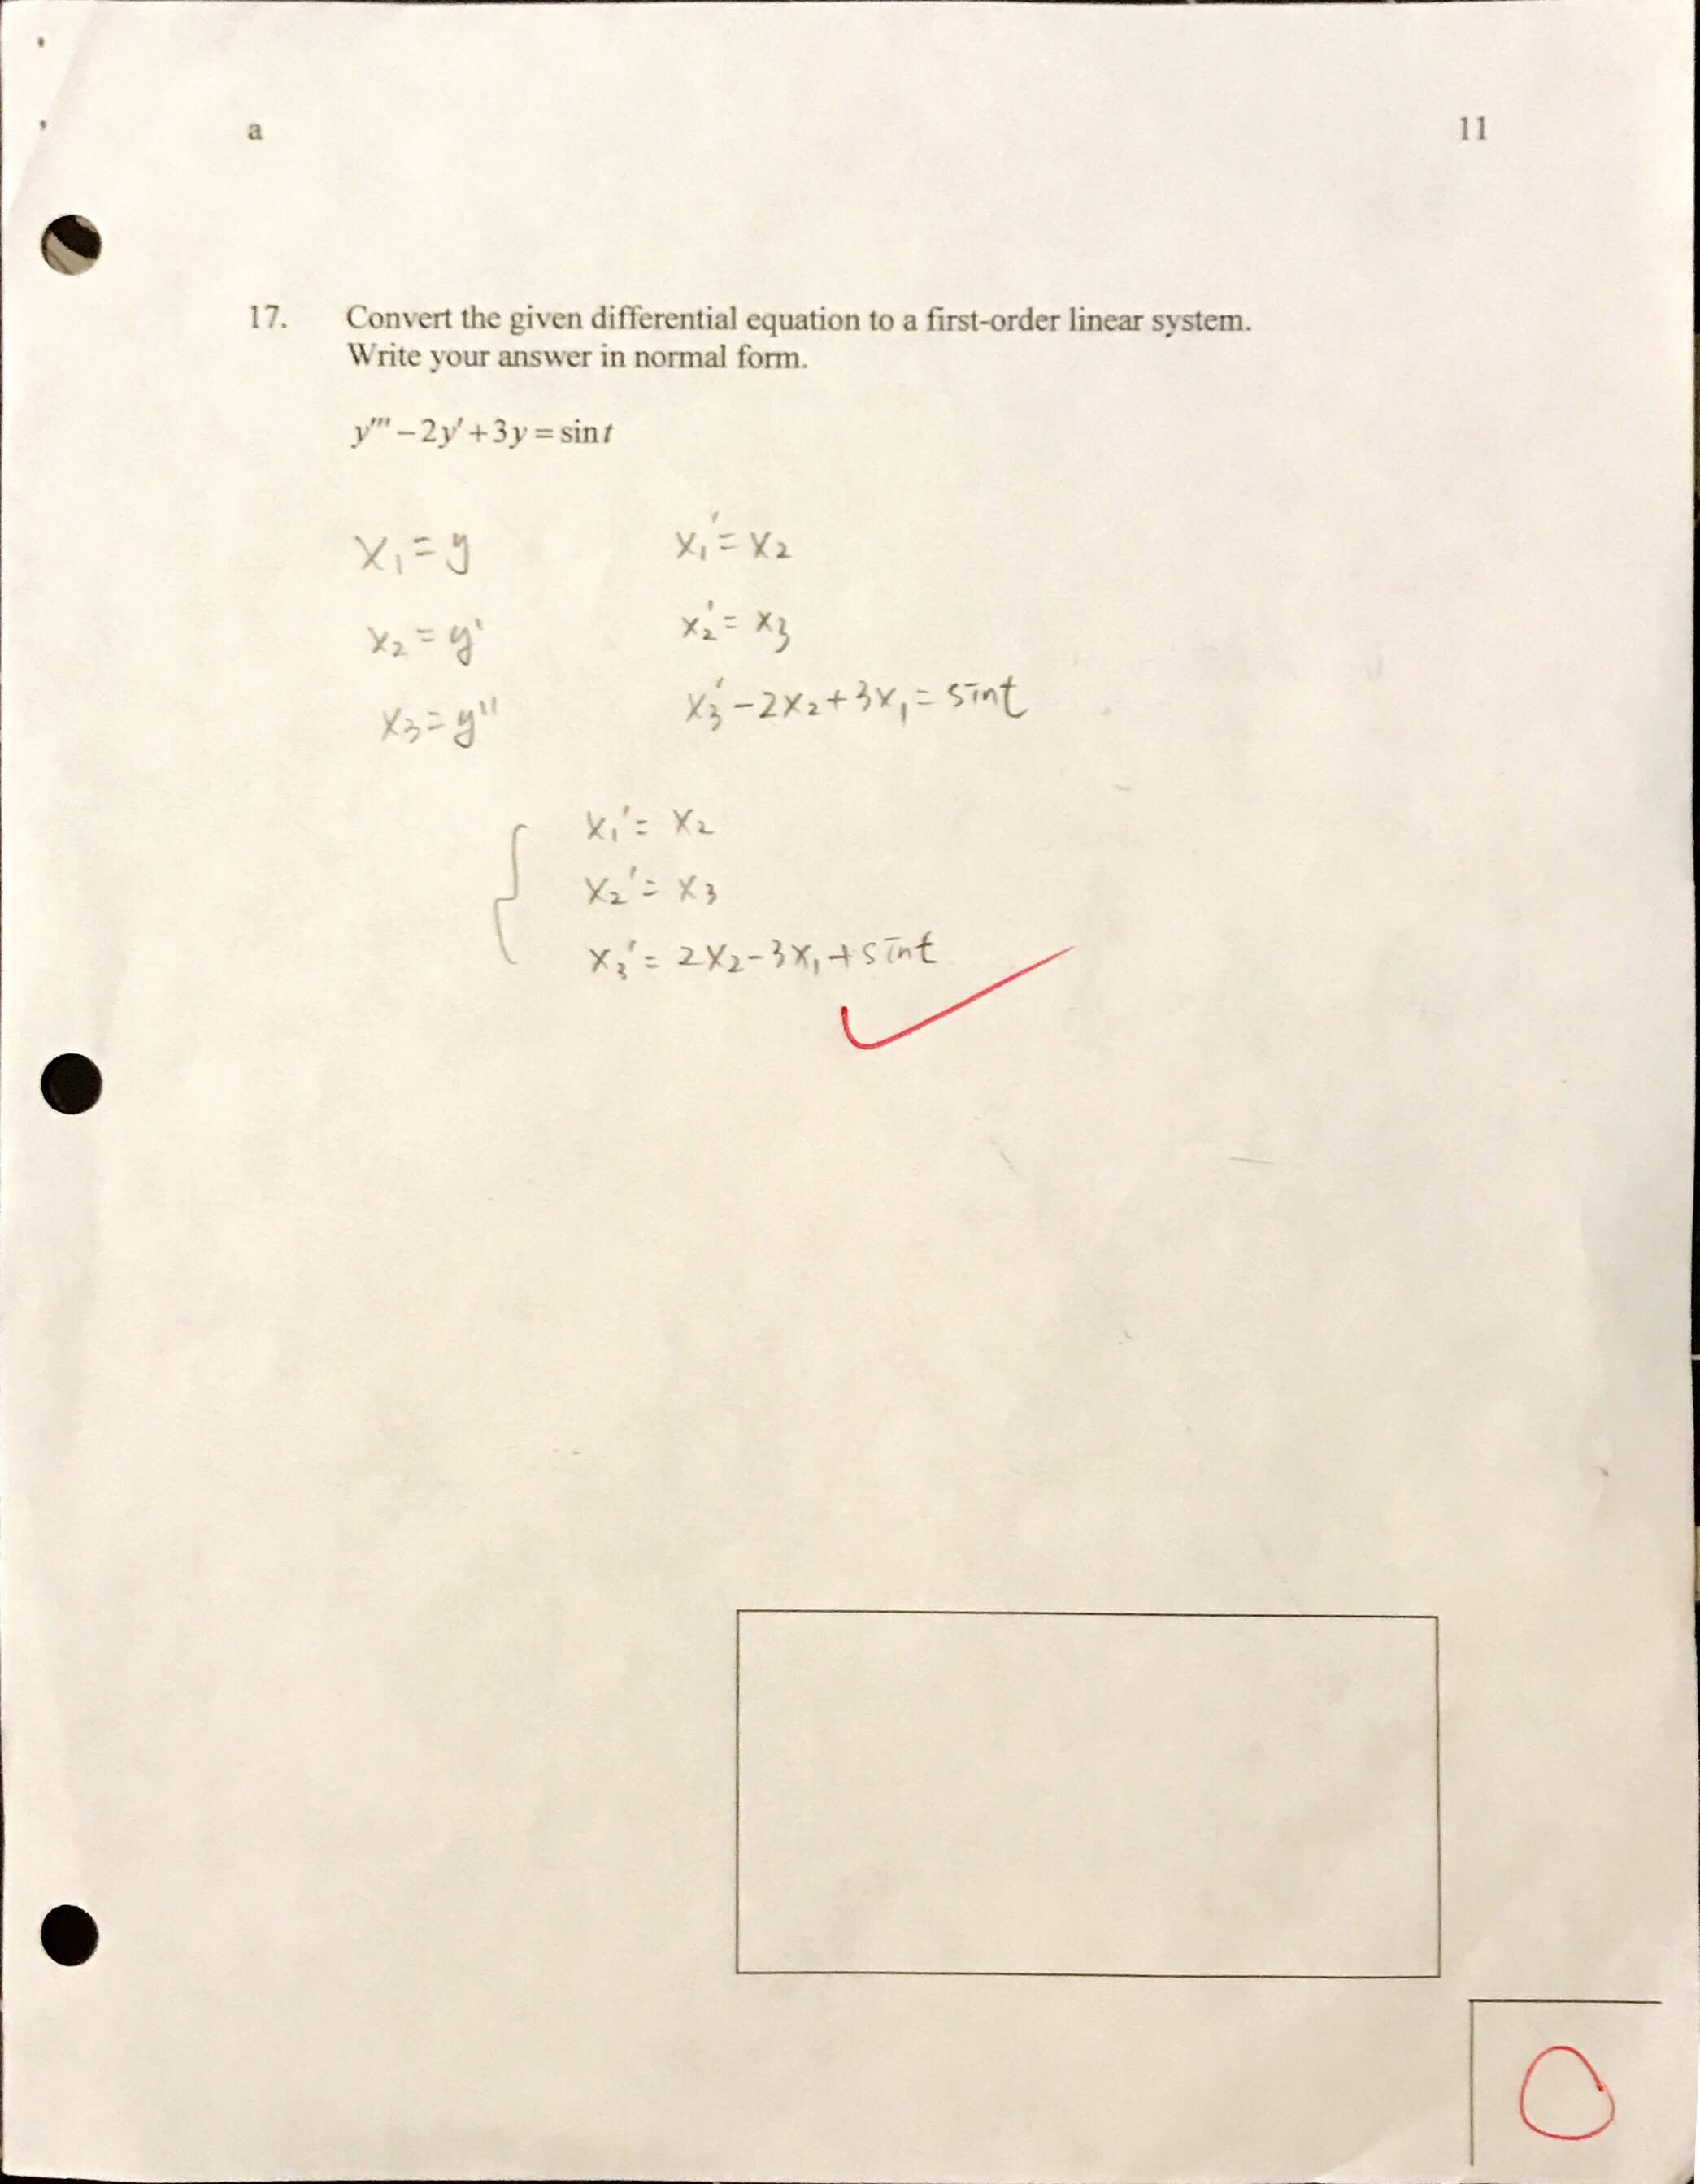 a 11
17. Convert the given differential equation to a first-order linear system.
Write your answer in normal form.
y''' − 2y' + 3y = sin t
x₁ = y x₁' = x₂
x₂ = y' x₂' = x₃
x₃ = y'' x₃' − 2x₂ + 3x₁ = sint
{ x₁' = x₂
x₂' = x₃
x₃' = 2x₂ − 3x₁ + sint
0